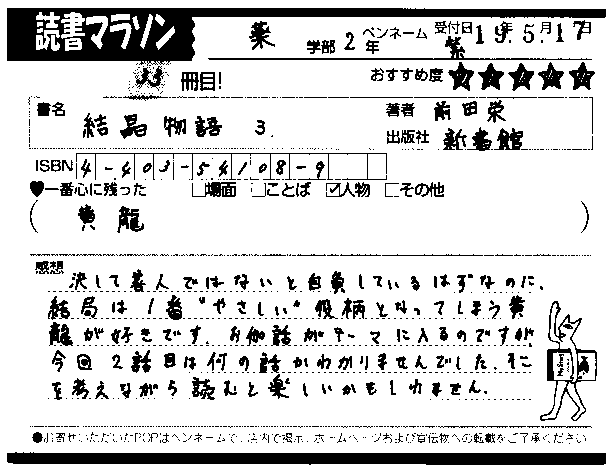 読書マラソン
薬 学部 2年 ペンネーム 紫 受付日 19年 5月 17日
33 冊目! おすすめ度 ★★★★★
書名 結晶物語 3. 著者 前田栄
出版社 新書館
ISBN 4-403-54108-9
♥一番心に残った □場面 □ことば ☑人物 □その他
( 黄龍 )
感想
決して善人ではないと自負しているはずなのに、
結局は1番"やさしい"役柄となってしまう黄
龍が好きです。お伽話がテーマに入るのですが
今回2話目は何の話かわかりませんでした。そこ
を考えながら読むと楽しいかもしれません。
●お寄せいただいたPOPはペンネームで、店内で掲示、ホームページおよび宣伝物への転載をご了承ください